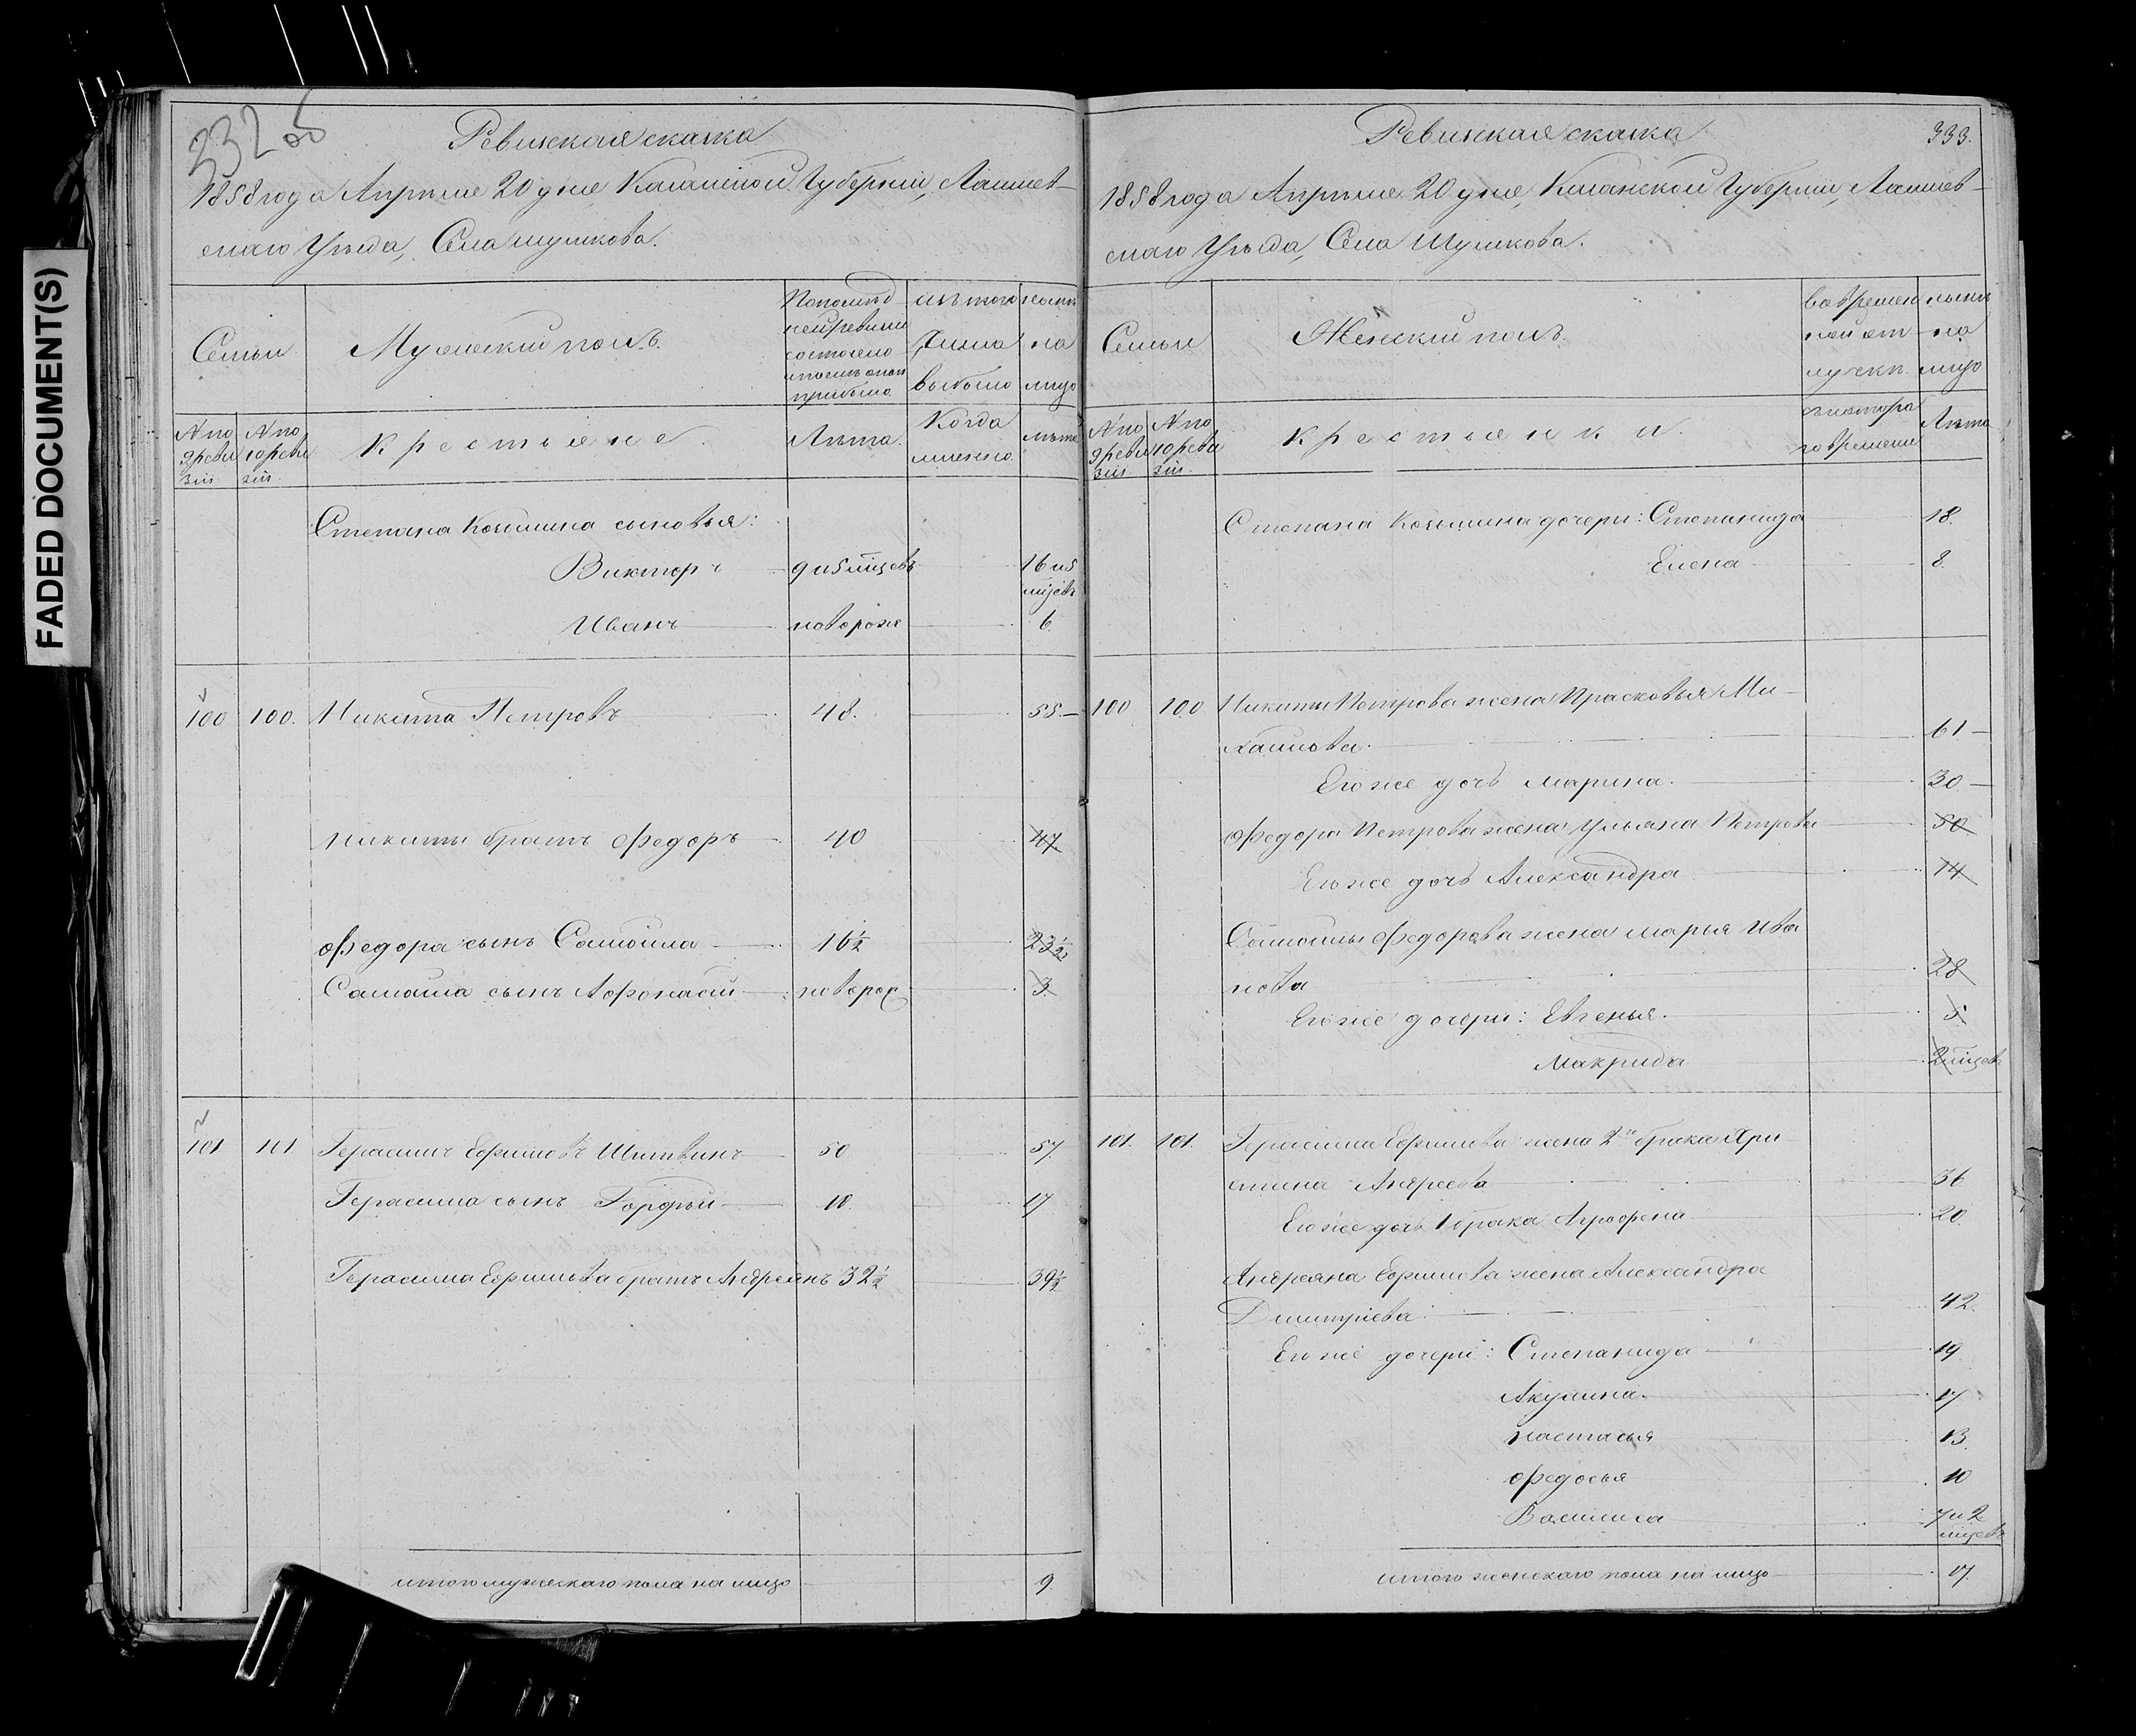 FADED DOCUMENT(S)
232 об
Ревизская сказка
1858 года Апреля 20 дня Казанской Губернии, Лаишев-
скаго Уѣзда, Села Шумкова.
Семьи
Мужеский полъ.
По послѣд
ней ревизіи
состояло
и послѣ оной
прибыло
изъ того
числа
выбыло
нынѣ
на
лицо
№ по
9 реви
зіи
№ по
10 реви
зіи.
Крестьяне.
Лѣта.
Когда
именно
лѣта
Степана сыновья:
Викторъ 9 и 5 мцевъ 16 и 5
мцевъ
Иванъ новорож 6
100 100. Никита Петровъ 48. 55.
Никиты братъ Федоръ 40 47
Федора сынъ Самойла 16½ 23½
Самойла сынъ Афонасій новорож 3
101 101 Герасимъ Ефимовъ 50 57.
Герасима сынъ Гордѣй 10. 17
Герасима Ефимова братъ Андреянъ 32½ 39½
итого мужескаго пола на лицо 9.
Ревизская сказка 333.
1858 года Апреля 20 дня, Казанской Губерніи, Лаишев-
скаго Уѣзда, Села Шумкова.
Семьи
Женский полъ.
во времен
ной от
лучкѣ.
нынѣ
на
лицо
№ по
9 реви
зіи
№ по
10 реви
зіи.
Крестьянки.
съ котора
го времени
Лѣта
Степана дочери: Степанида 18.
Елена 8.
100 100 Никиты Петрова жена Прасковья Ми-
хайлова. 61
Его же дочь Марина. 30
Федора Петрова жена Ульяна Петрова 50
Его же дочь Александра 14
Самойлы Федорова жена Марья Ива
нова 28
Его же дочери: Евгенья. 5
Макрида 2 мцевъ
101. 101. Герасима Ефимова жена 2го брака Хри
стина Андреева 36
Его же дочь 1 брака Агрофена 20.
Андреяна Ефимова жена Александра
Дмитріева 42.
Его же дочери: Степанида 19
Акулина. 17
Настасья 13.
Федосья 10
Василиса 7 и 2
мцевъ
итого женскаго пола на лицо 17.